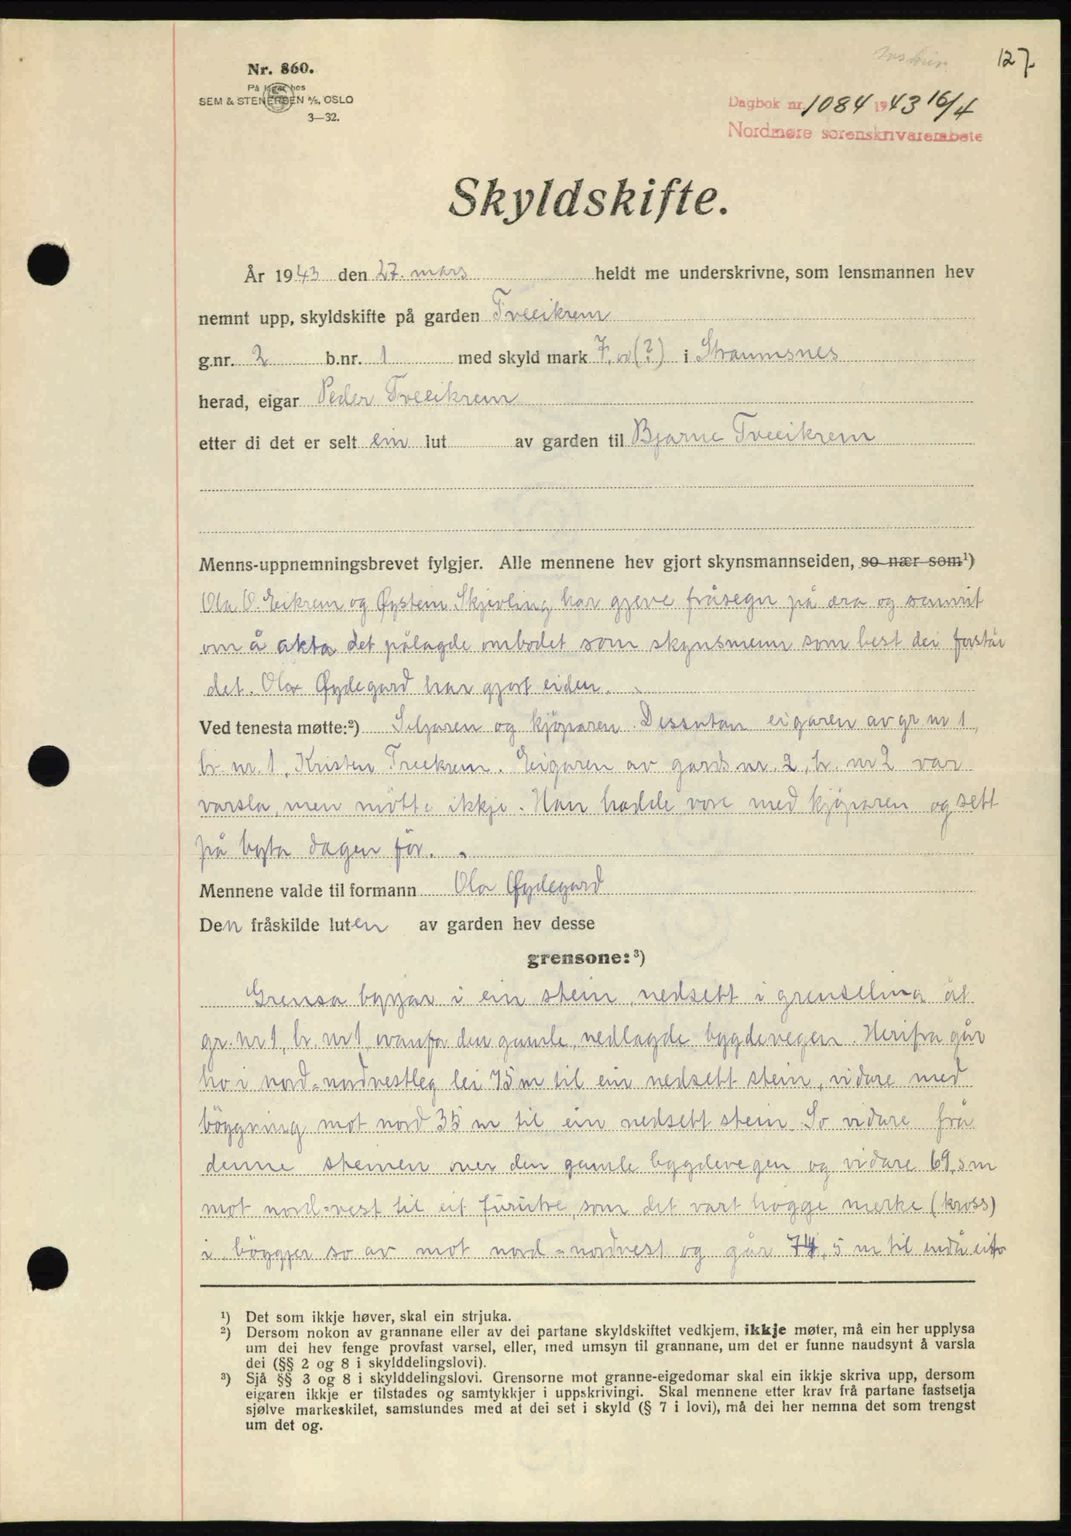 127
Nr. 860.
På lager hos
SEM & STENERSEN A/S, OSLO
3—32.
Dagbok nr. 1084 1943 16/4
Nordmøre sorenskrivarembete
Skyldskifte.
År 1943 den 27. mars heldt me underskrivne, som lensmannen hev
nemnt upp, skyldskifte på garden Tveeikrem
g.nr. 2 b.nr. 1 med skyld mark 7,00 (?) i Straumsnes
herad, eigar Peder Tveeikrem
etter di det er selt ein lut av garden til Bjarne Tveeikrem
Menns-uppnemningsbrevet fylgjer. Alle mennene hev gjort skynsmannseiden, so nær som¹)
Ola O. Eikrem og Øystein Skjevling har gjeve fråsegn på æra og samvit
om å akta det pålagde ombodet som skynsmenn som best dei forstår
det. Ola Øydegard har gjort eiden.
Ved tenesta møtte:²) Seljaren og kjøparen. Dessutan eigaren av gr. nr 1,
br. nr. 1, Kristen Treekrem. Eigaren av gards nr. 2, br. nr 2 var
varsla, men møtte ikkje. Han hadde vore med kjøparen og sett
på byta dagen før.
Mennene valde til formann Ola Øydegard
Den fråskilde luten av garden hev desse
grensone:³)
Grensa byrjar i ein stein, nedsett i grenselina åt
gr. nr 1, br. nr 1, ovanfor den gamle, nedlagde bygdevegen. Herifra går
ho i nord-nordvestleg lei 75 m til ein nedsett stein, vidare med
bøygning mot nord 35 m til ein nedsett stein. So vidare frå
denne steinen over den gamle bygdevegen og vidare 69,5 m
mot nord-vest til eit furutre, som det vart hogge merke (kross)
i, bøygjer so av mot nord-nordvest og går 74,5 m til endå eit
¹) Det som ikkje høver, skal ein strjuka.
²) Dersom nokon av grannane eller av dei partane skyldskiftet vedkjem, ikkje møter, må ein her upplysa
um dei hev fenge provfast varsel, eller, med umsyn til grannane, um det er funne naudsynt å varsla
dei (§§ 2 og 8 i skylddelingslovi).
³) Sjå §§ 3 og 8 i skylddelingslovi. Grensorne mot granne-eigedomar skal ein ikkje skriva upp, dersom
eigaren ikkje er tilstades og samtykkjer i uppskrivingi. Skal mennene etter krav frå partane fastsetja
sjølve markeskilet, samstundes med at dei set i skyld (§ 7 i lovi), må dei her nemna det som trengst
um det og.